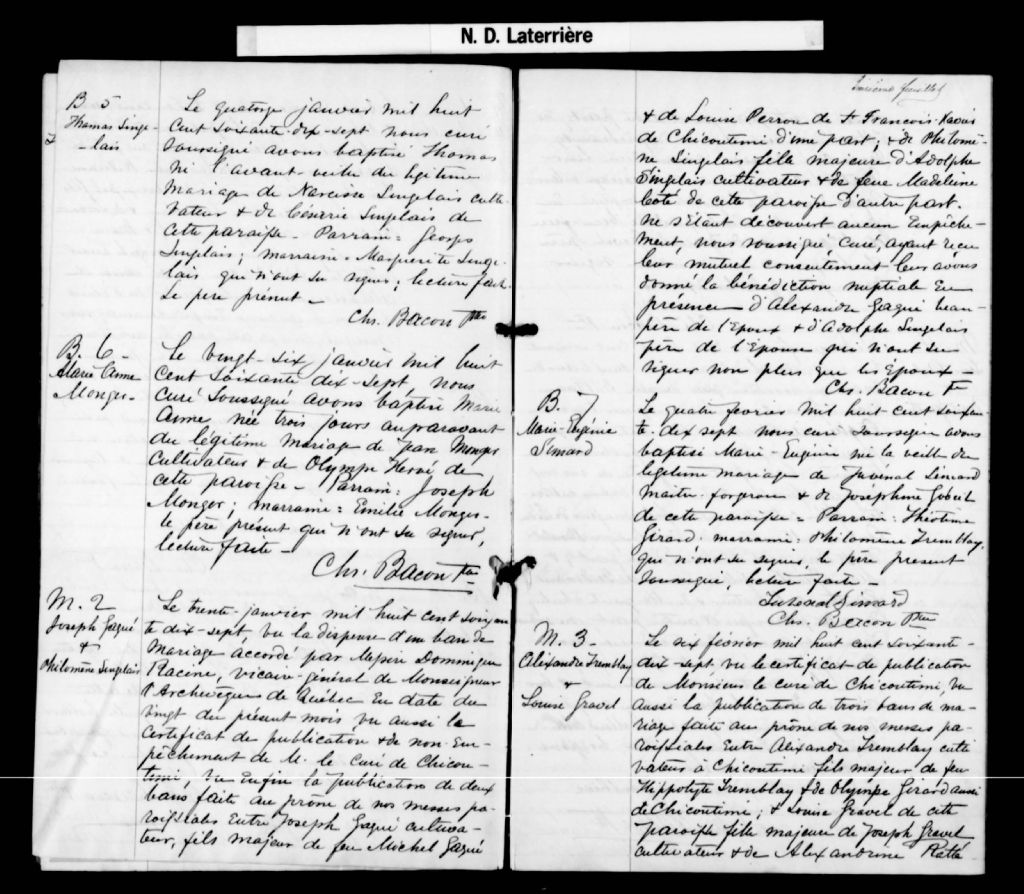 N. D. Laterrière
B 5
Thomas Singe-
-lais
Le quatorze janvier mil huit
cent soixante-dix-sept nous curé
soussigné avons baptisé Thomas
né l'avant-veille du légitime
mariage de Narcisse Singelais culti-
vateur & de Césarie Singelais de
cette paroisse - Parrain: Georges
Singelais; marraine - Marguerite Singe-
lais qui n'ont su signer; lecture faite.
Le père présent -
Chs. Bacon Ptre
B. 6 -
Marie Anne
Monger -
Le vingt-six janvier mil huit
cent soixante dix-sept, nous
curé soussigné avons baptisé Marie
Anne née trois jours auparavant
du légitime mariage de Jean Monger
cultivateur & de Olympe Hervé de
cette paroisse - Parrain: Joseph
Monger; marraine: Emilie Monger -
le père présent qui n'ont su signer,
lecture faite -
Chs. Bacon Ptre
M. 2
Joseph Gagné
&
Philomène Singelais
Le trente janvier mil huit cent soixan
te dix-sept, vu la dispense d'un ban de
mariage accordé par Messire Dominique
Racine, vicaire-général de Monseigneur
l'Archevêque de Québec en date du
vingt du présent mois vu aussi le
certificat de publication & de non-em-
pêchement de M. le curé de Chicou-
timi vu enfin la publication de deux
bans faite au prône de nos messes pa-
roissiales entre Joseph Gagné cultiva-
teur, fils majeur de feu Michel Gagné
Troisième feuillet
& de Louise Perron de St François-Xavier
de Chicoutimi d'une part; & de Philomè-
ne Singelais fille majeure d'Adolphe
Singelais cultivateur & de feue Madeleine
Coté de cette paroisse d'autre part.
ne s'étant découvert aucun empêche-
ment, nous soussigné curé, ayant recu
leur mutuel consentement leur avons
donné la bénédiction nuptiale en
présence d'Alexandre Gagné beau-
père de l'Epoux & d'Adolphe Singelais
père de l'Epouse qui n'ont su
signer non plus que les Epoux -
Chs. Bacon Ptre
B. 7
Marie-Eugénie
Simard
Le quatre février mil huit cent soixan
te-dix sept nous curé soussigné avons
baptisé Marie-Eugénie née la veille du
légitime mariage de Juvénal Simard
maître-forgeron & de Joséphine Gobeil
de cette paroisse - Parrain: Théotime
Girard marraine: Philomène Tremblay,
qui n'ont su signer, le père présent
soussigné lecture faite -
Juvénal Simard
Chs. Bacon Ptre
M. 3 -
Alexandre Tremblay
&
Louise Gravel
Le six février mil huit cent soixante-
dix-sept vu le certificat de publication
de Monsieur le curé de Chicoutimi, vu
aussi la publication de trois bans de ma-
riage faite au prône de nos messes pa-
roissiales entre Alexandre Tremblay culti
vateur à Chicoutimi fils majeur de feu
Hippolyte Tremblay & de Olympe Girard aussi
de Chicoutimi; & Louise Gravel de cette
paroisse fille majeure de Joseph Gravel
cultivateur & de Alexandrine Ratté